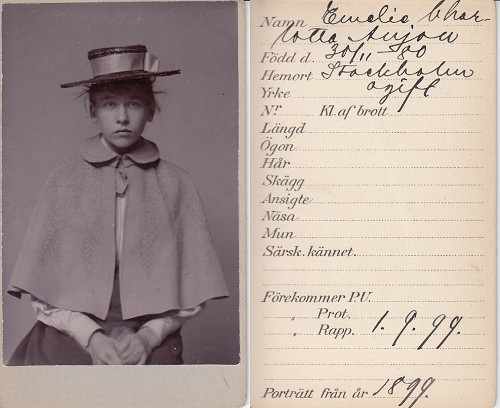 Namn Emelie Char-
lotta Anjou
Född d. 30/11 -80
Hemort Stockholm
Yrke ogift
Nr Kl. af brott
Längd
Ögon
Hår
Skägg
Ansigte
Näsa
Mun
Särsk. kännet.
Förekommer P.V.
" Prot.
" Rapp. 1.9.99.
Porträtt från år 1899.